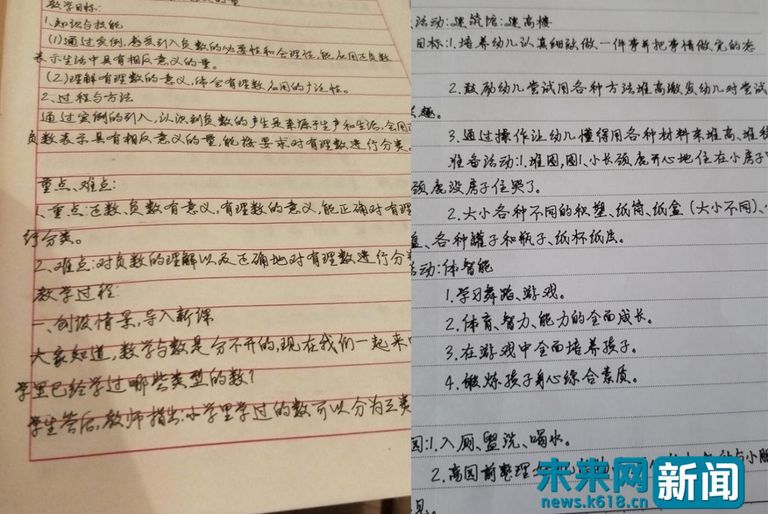 教学目标:
1.知识与技能
(1)通过实例,感受引入负数的必要性和合理性,能应用正负数
表示生活中具有相反意义的量。
(2)理解有理数的意义,体会有理数应用的广泛性。
2.过程与方法
通过实例的引入,认识到负数的产生是来源于生产和生活,会用正
负数表示具有相反意义的量,能按要求对有理数进行分类。
重点、难点:
1.重点:正数、负数有意义,有理数的意义,能正确对有理
行分类。
2.难点:对负数的理解以及正确地对有理数进行分
教学过程:
一、创设情景,导入新课
大家知道,数学与数是分不开的,现在我们一起来
学里已经学过哪些类型的数?
学生答后,教师指出:小学里学过的数可以分为三类
活动:建筑馆:建高楼
目标:1.培养幼儿认真细致做一件事并把事情做完的态
2.鼓励幼儿尝试用各种方法堆高激发幼儿对尝试
趣。
3.通过操作让幼儿懂得用各种材料来堆高、堆
准备活动:1.挂图,图1.小长颈鹿开心地住在小房子
颈鹿没房子住哭了。
2.大小各种不同的积塑、纸筒、纸盒(大小不同)、
、各种罐子和瓶子、纸杯纸
活动:体智能
1.学习舞蹈、游戏。
2.体育、智力、能力的全面成长。
3.在游戏中全面培养孩子。
4.锻炼孩子身心综合素质。
园:1.入厕、盥洗、喝水。
2.离园前整理
未来网 新闻
news.k618.cn